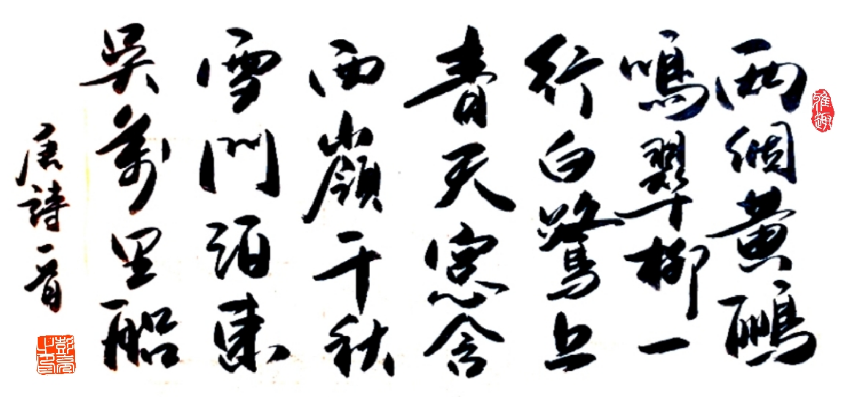 两個黄鸝
鳴翠柳一
行白鷺上
青天窓含
西嶺千秋
雪門泊東
吴萬里船
唐詩一首